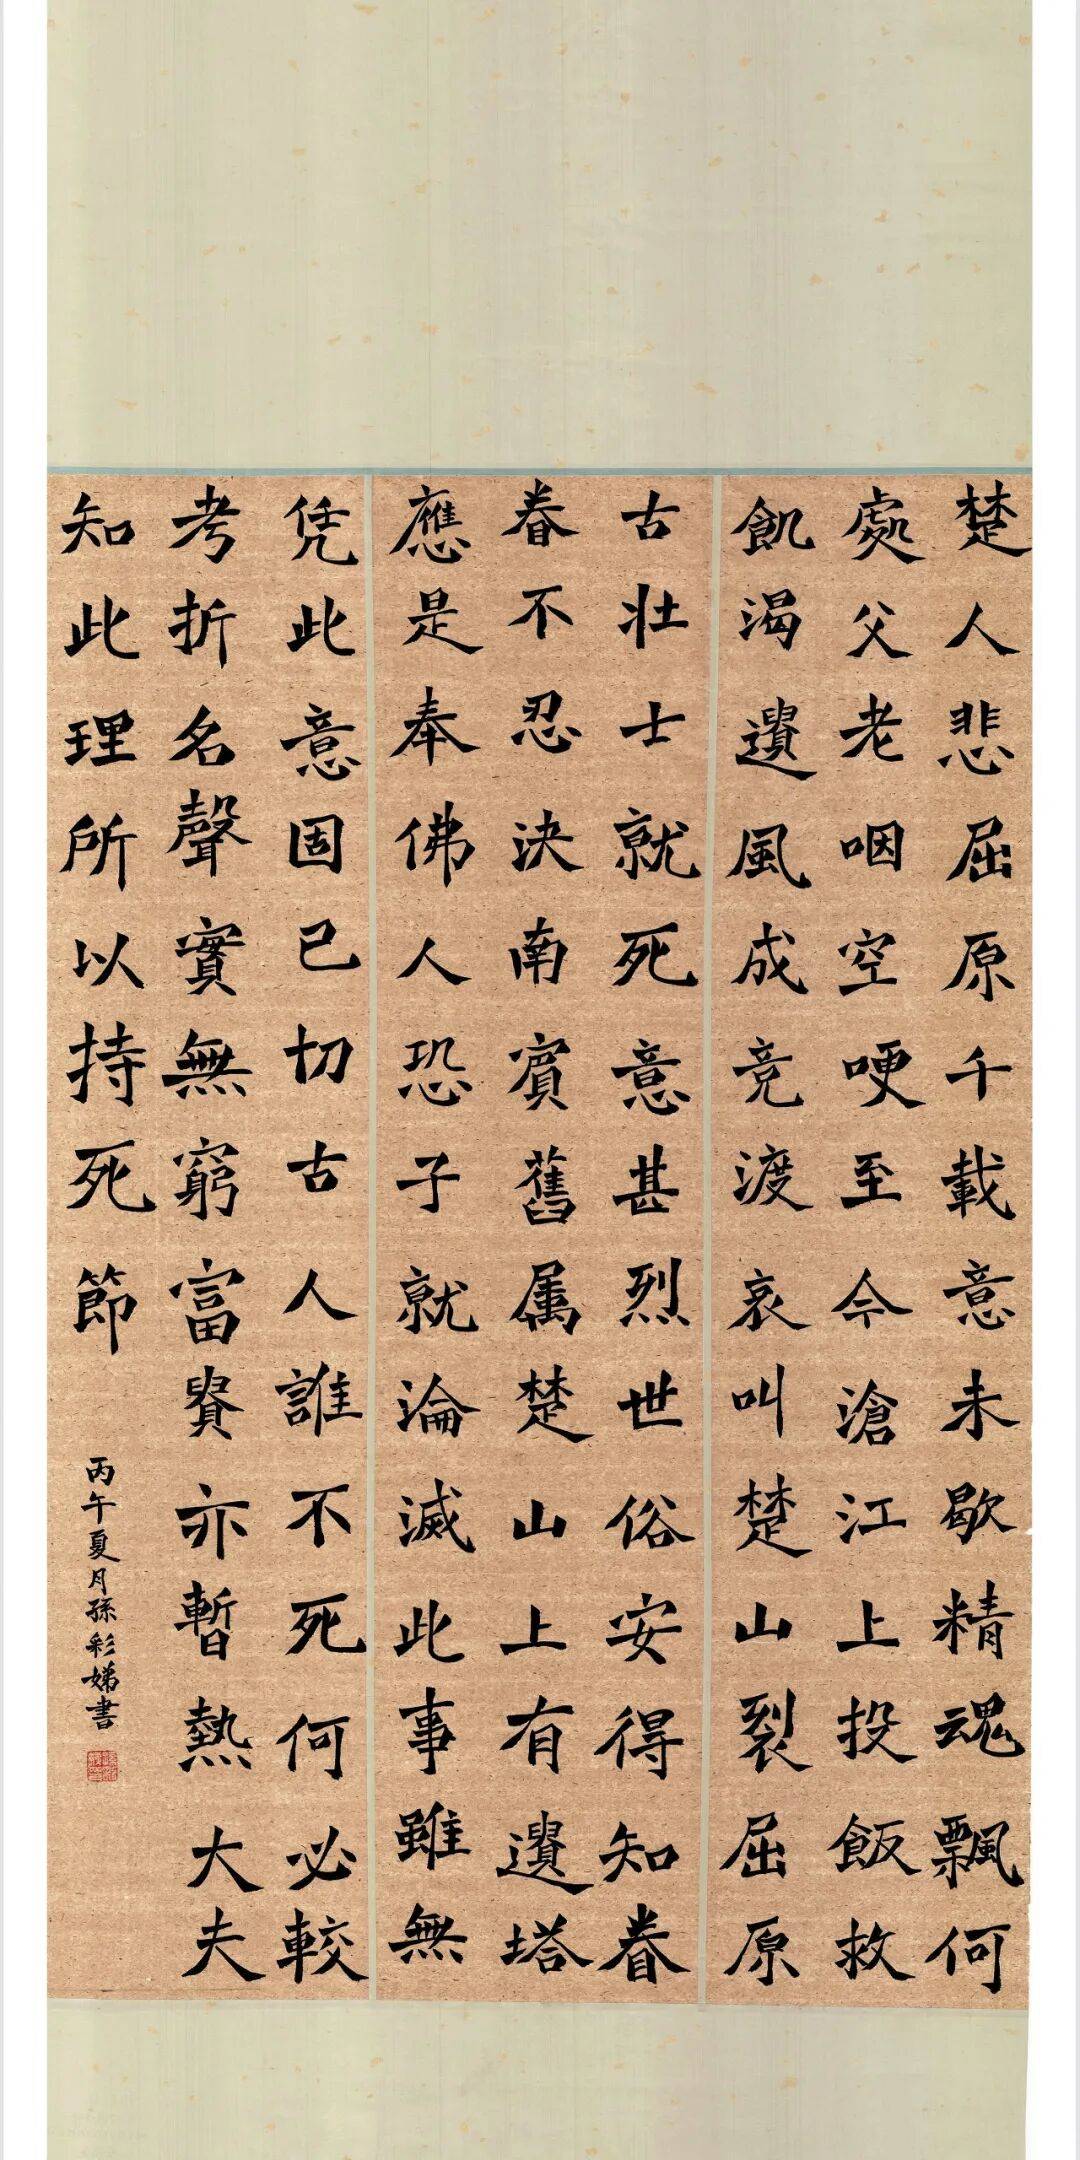 楚人悲屈原千載意未歇精魂飄何
處父老咽空哽至今滄江上投飯救
飢渴遺風成竞渡哀叫楚山裂屈原
古壯士就死意甚烈世俗安得知眷
眷不忍決南賓舊属楚山上有遺塔
應是奉佛人恐子就淪滅此事雖無
凭此意固已切古人誰不死何必較
考折名聲實無窮富貴亦暫熱大夫
知此理所以持死節
丙午夏月孫彩娣書